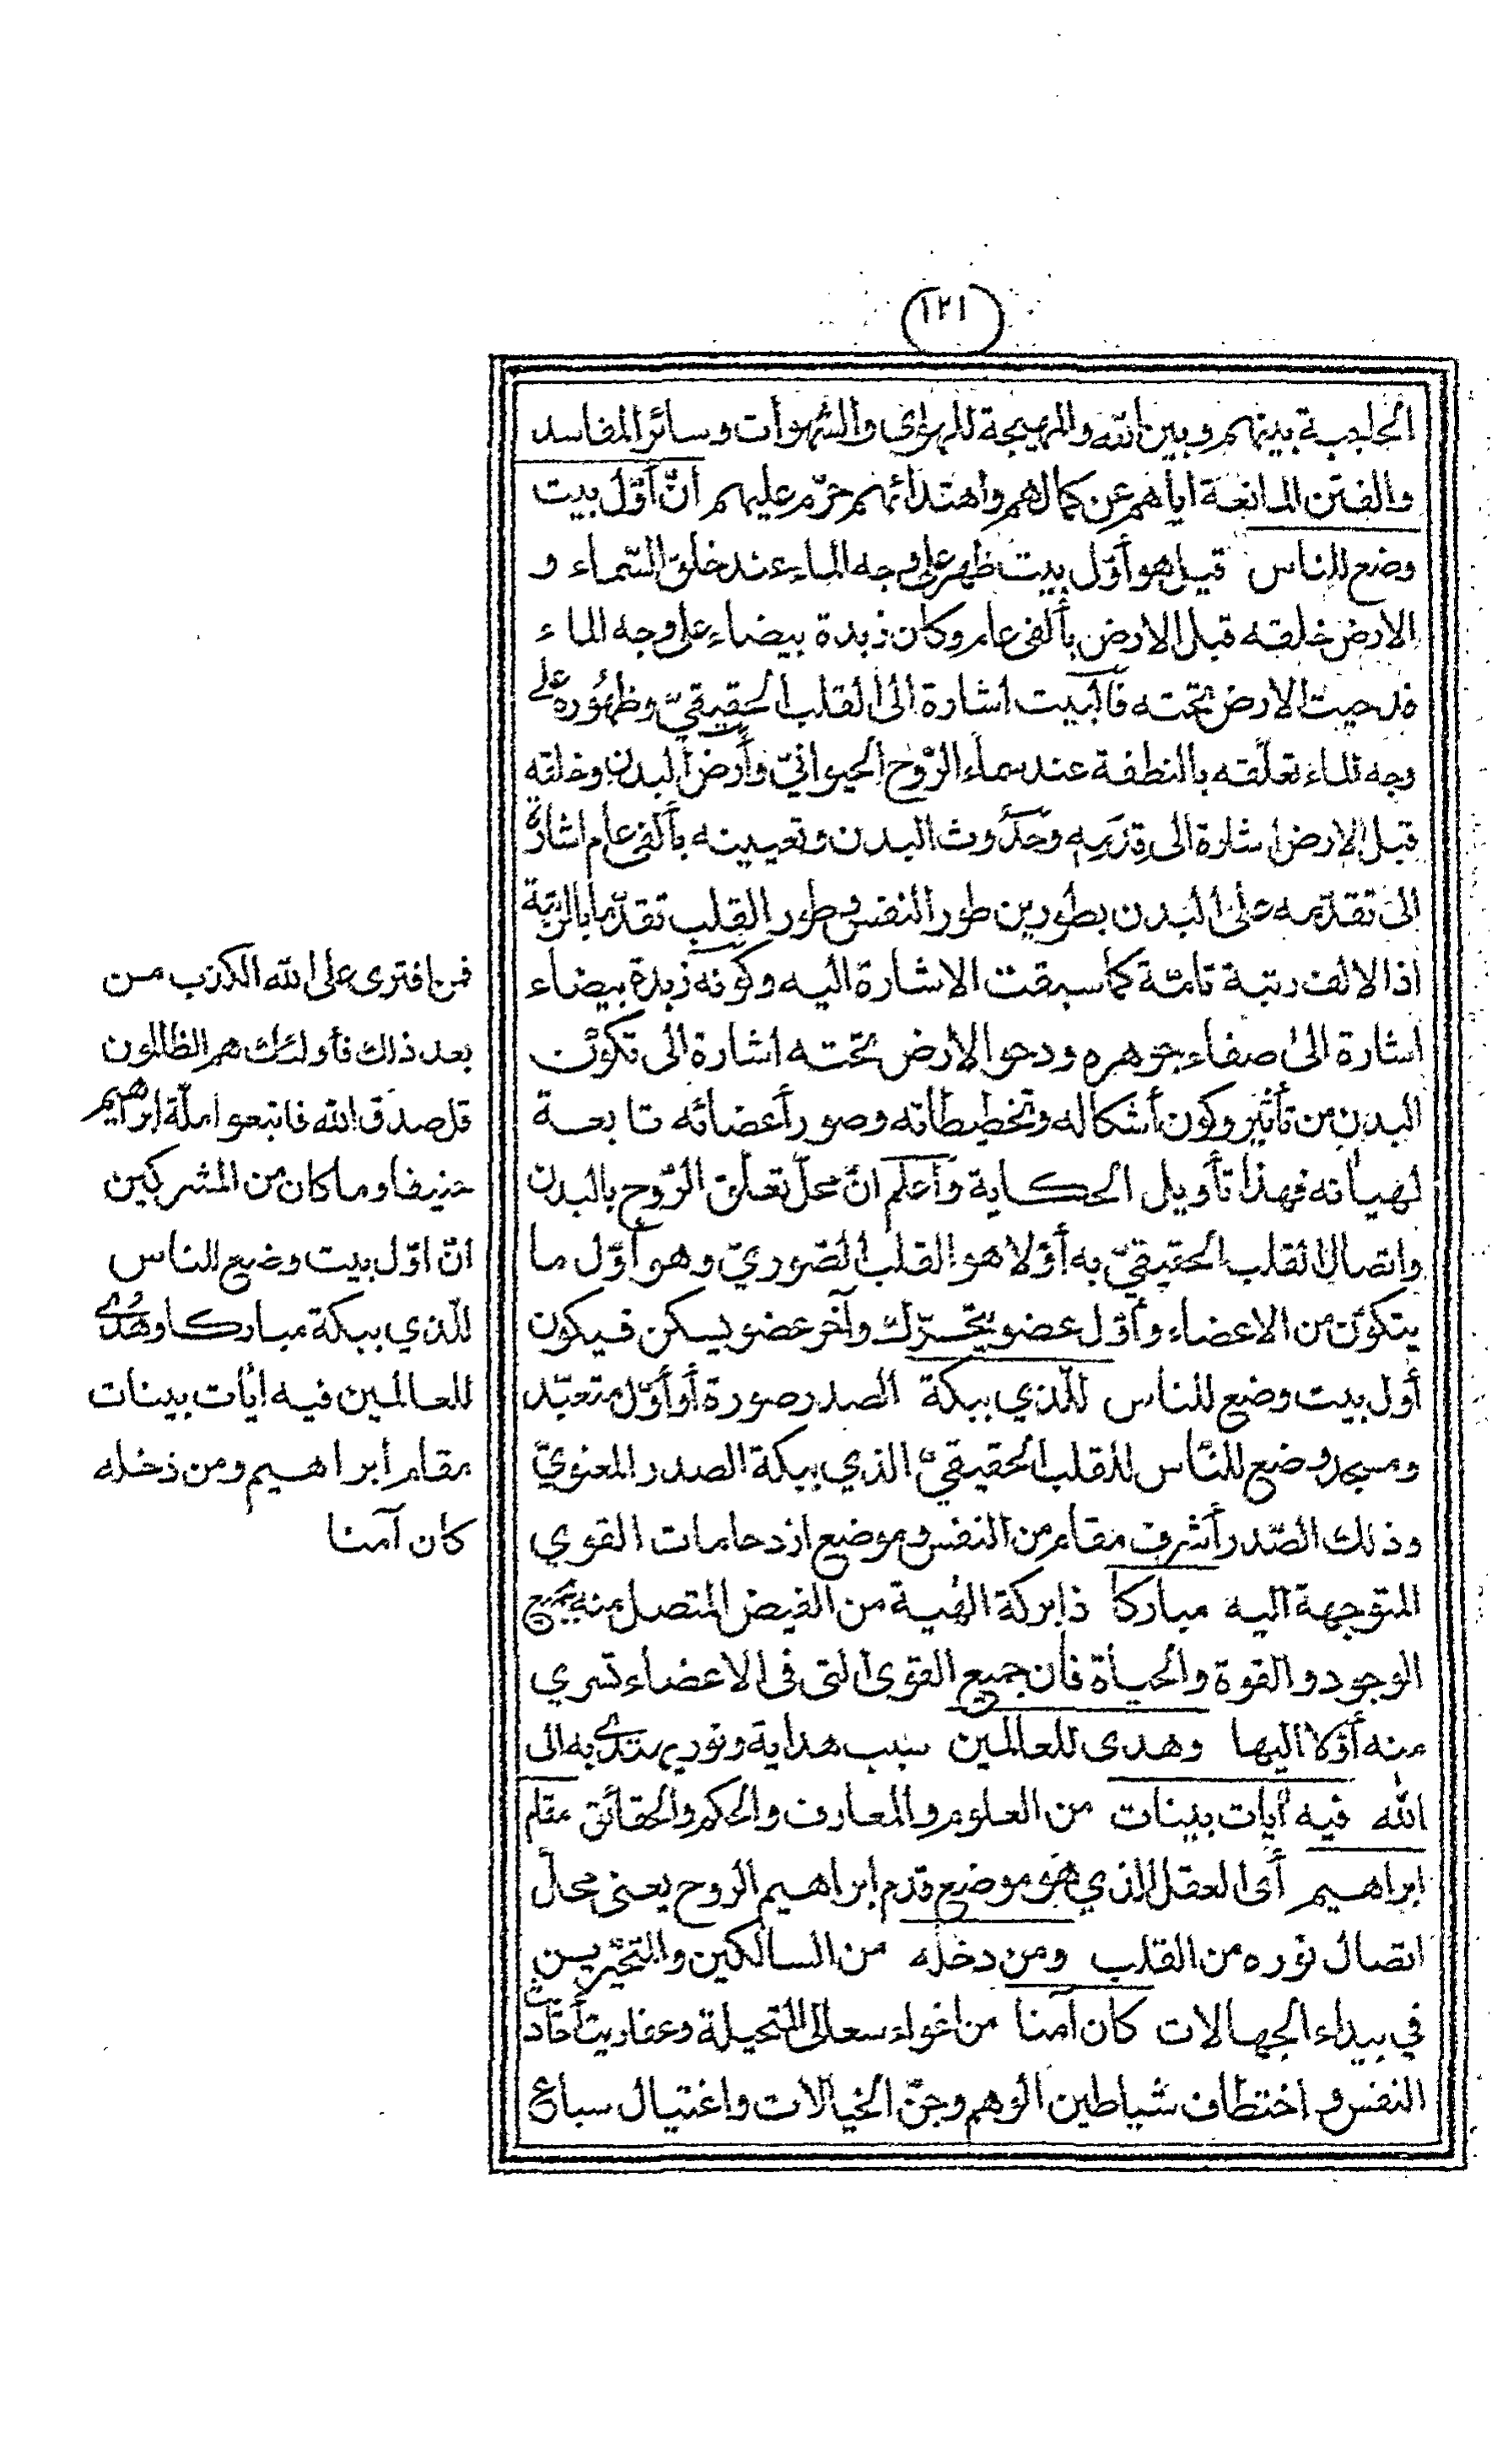 (١٢١)
الحاجبة بينهم وبين الله والمهيجة للهوى والشهوات وسائر المفاسد
والفتن المانعة اياهم عن كمالهم واهتدائهم حرّم عليهم انّ أوّل بيت
وضع للناس قيل هو أوّل بيت ظهر على وجه الماء عند خلق السّماء و
الارض خلقه قبل الارض بألفى عام وكان زبدة بيضاء على وجه الماء
فدحيت الارض تحته فالبيت اشارة الى القلب الحقيقيّ وظهوره على
وجه الماء تعلّقه بالنطفة عند سماء الرّوح الحيوانيّ وأرض البدن وخلقه
قبل الارض اشارة الى قدمه وحدوث البدن وتعيينه بألفى عام اشارة
الى تقدّمه على البدن بطورين طور النفس وطور القلب تقدّما بالرتبة
اذ الالف رتبة تامّة كما سبقت الاشارة اليه وكونه زبدة بيضاء
اشارة الى صفاء جوهره ودحو الارض تحته اشارة الى تكوّن
البدن من تأثيره وكون أشكاله وتخطيطاته وصور أعضائه تابعة
لهيآته فهذا تأويل الحكاية واعلم انّ محلّ تعلق الرّوح بالبدن
واتصال القلب الحقيقيّ به أوّلا هو القلب الصّوريّ وهو أوّل ما
يتكوّن من الاعضاء وأوّل عضو يتحرّك وآخر عضو يسكن فيكون
أول بيت وضع للناس للّذي ببكة الصدر صورة أو أوّل متعبّد
ومسجد وضع للنّاس للقلب الحقيقيّ الذي ببكة الصدر المعنويّ
وذلك الصّدر أشرف مقام من النفس وموضع ازدحامات القوي
المتوجهة اليه مباركا ذا بركة الهية من الفيض المتصل منه بجميع
الوجود والقوة والحياة فان جميع القوى التى فى الاعضاء تسري
منه أوّلا اليها وهدى للعالمين سبب هداية ونور يهتدى به الى
الله فيه آيات بينات من العلوم والمعارف والحكم والحقائق مقام
ابراهيم أى العقل الذي هو موضع قدم ابراهيم الروح يعنى محلّ
اتصال نوره من القلب ومن دخله من السالكين والمتحيّرين
في بيداء الجهالات كان آمنا من اغواء سعالى المتخيلة وعفاريت أحاديث
النفس واختطاف شياطين الوهم وجنّ الخيالات واغتيال سباع
فمن افترى على الله الكذب من
بعد ذلك فأولئك هم الظالمون
قل صدق الله فاتبعوا ملّة ابراهيم
حنيفا وما كان من المشركين
انّ اوّل بيت وضع للناس
للّذي ببكة مباركا وهُدًى
للعالمين فيه آيات بينات
مقام ابراهيم ومن دخله
كان آمنا